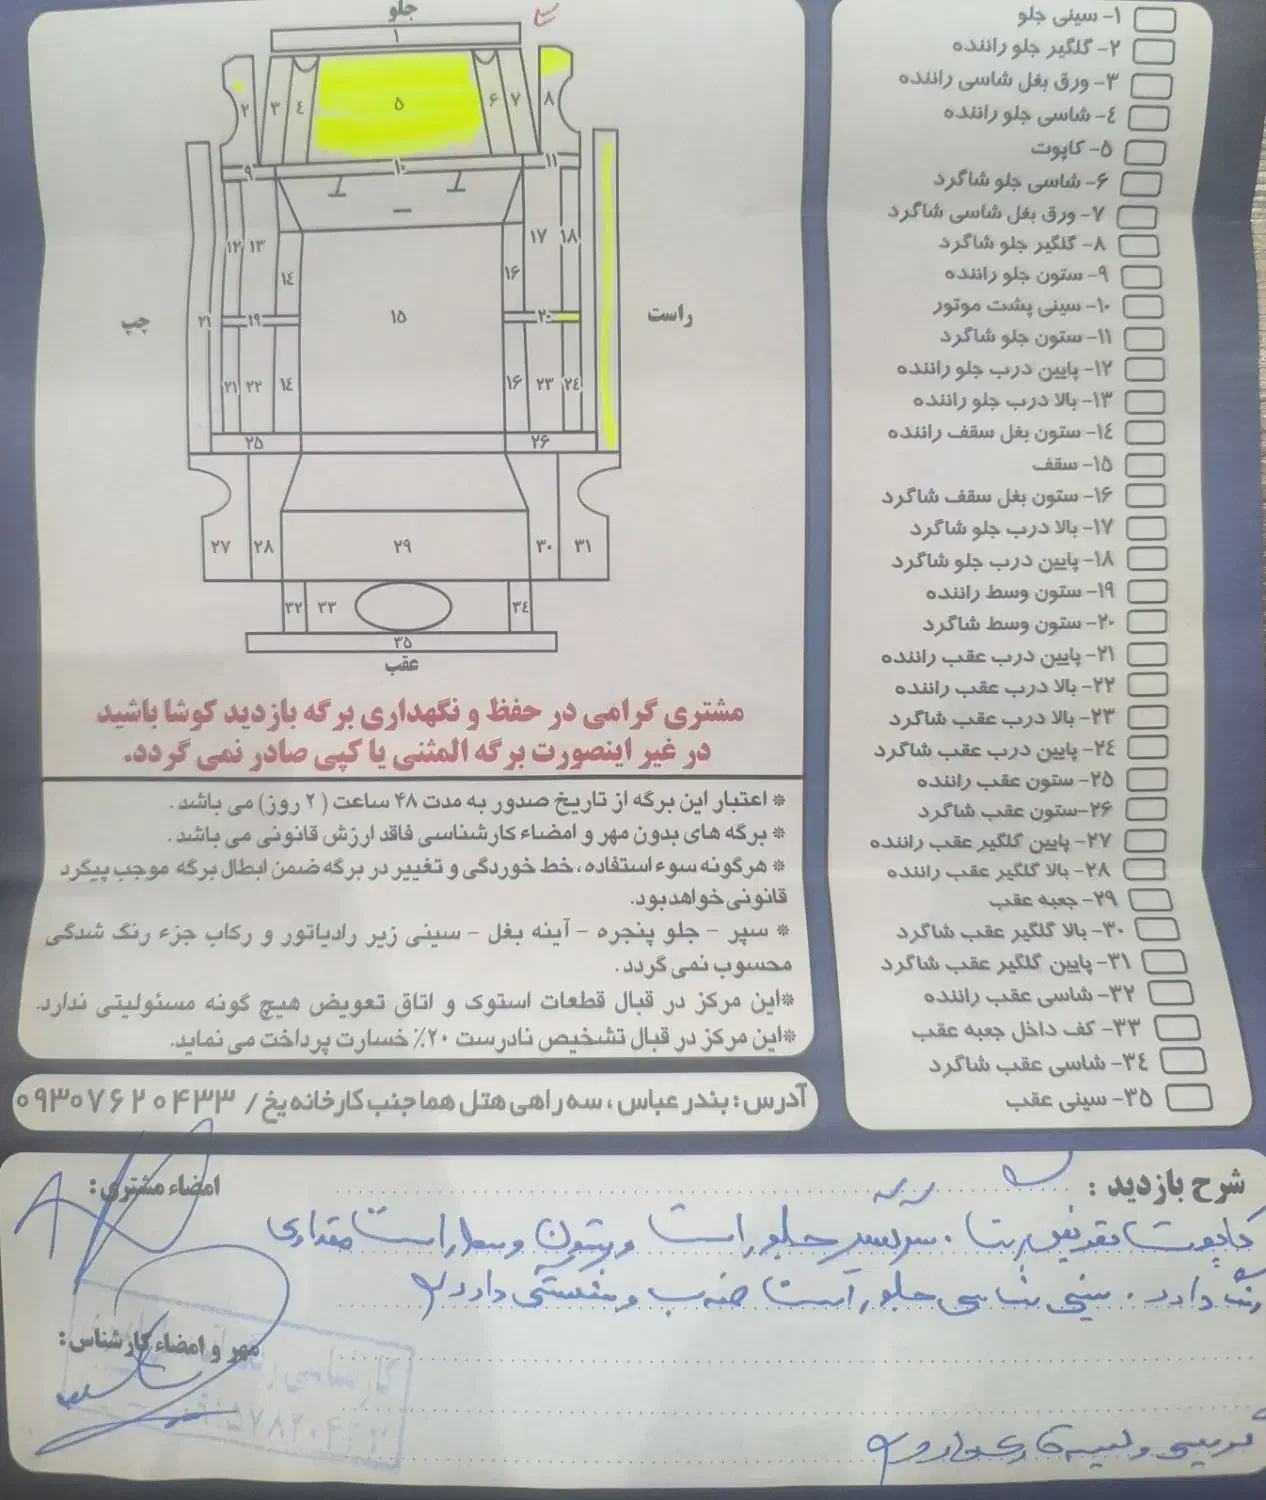 ۱- سینی جلو
۲- گلگیر جلو راننده
۳- ورق بغل شاسی راننده
٤- شاسی جلو راننده
۵- کاپوت
۶- شاسی جلو شاگرد
۷- ورق بغل شاسی شاگرد
۸- گلگیر جلو شاگرد
۹- ستون جلو راننده
۱۰- سینی پشت موتور
۱۱- ستون جلو شاگرد
۱۲- پایین درب جلو راننده
۱۳- بالا درب جلو راننده
۱٤- ستون بغل سقف راننده
۱۵- سقف
۱۶- ستون بغل سقف شاگرد
۱۷- بالا درب جلو شاگرد
۱۸- پایین درب جلو شاگرد
۱۹- ستون وسط راننده
۲۰- ستون وسط شاگرد
۲۱- پایین درب عقب راننده
۲۲- بالا درب عقب راننده
۲۳- بالا درب عقب شاگرد
۲٤- پایین درب عقب شاگرد
۲۵- ستون عقب راننده
۲۶-ستون عقب شاگرد
۲۷- پایین گلگیر عقب راننده
۲۸- بالا گلگیر عقب راننده
۲۹- جعبه عقب
۳۰- بالا گلگیر عقب شاگرد
۳۱- پایین گلگیر عقب شاگرد
۳۲- شاسی عقب راننده
۳۳- کف داخل جعبه عقب
۳٤- شاسی عقب شاگرد
۳۵- سینی عقب
جلو
۱
۲ ۳ ٤ ۵ ۶ ۷ ۸
۹ ۱۰ ۱۱
۱۲ ۱۳ ۱٤ ۱۶ ۱۷ ۱۸
چپ ۲۱ ۱۹ ۱۵ ۲۰ راست
۲۱ ۲۲ ۱٤ ۱۶ ۲۳ ۲٤
۲۵ ۲۶
۲۷ ۲۸ ۲۹ ۳۰ ۳۱
۳۲ ۳۳ ۳٤
۳۵
عقب
مشتری گرامی در حفظ و نگهداری برگه بازدید کوشا باشید
در غیر اینصورت برگه المثنی یا کپی صادر نمی گردد.
* اعتبار این برگه از تاریخ صدور به مدت ۴۸ ساعت (۲ روز) می باشد.
* برگه های بدون مهر و امضاء کارشناسی فاقد ارزش قانونی می باشد.
* هرگونه سوء استفاده، خط خوردگی و تغییر در برگه ضمن ابطال برگه موجب پیگرد
قانونی خواهدبود.
* سپر - جلو پنجره - آینه بغل - سینی زیر رادیاتور و رکاب جزء رنگ شدگی
محسوب نمی گردد.
*این مرکز در قبال قطعات استوک و اتاق تعویض هیچ گونه مسئولیتی ندارد.
*این مرکز در قبال تشخیص نادرست ۲۰٪ خسارت پرداخت می نماید.
آدرس: بندرعباس، سه راهی هتل هما جنب کارخانه یخ / ۰۹۳۰۷۶۲۰۴۳۳
شرح بازدید :
امضاء مشتری:
کاپوت تعویض گلگیر جلو راست و ستون وسط راست مقداری
رنگ دارد. سینی شاسی جلو راست ضرب و دارد
مهر و امضاء کارشناس: